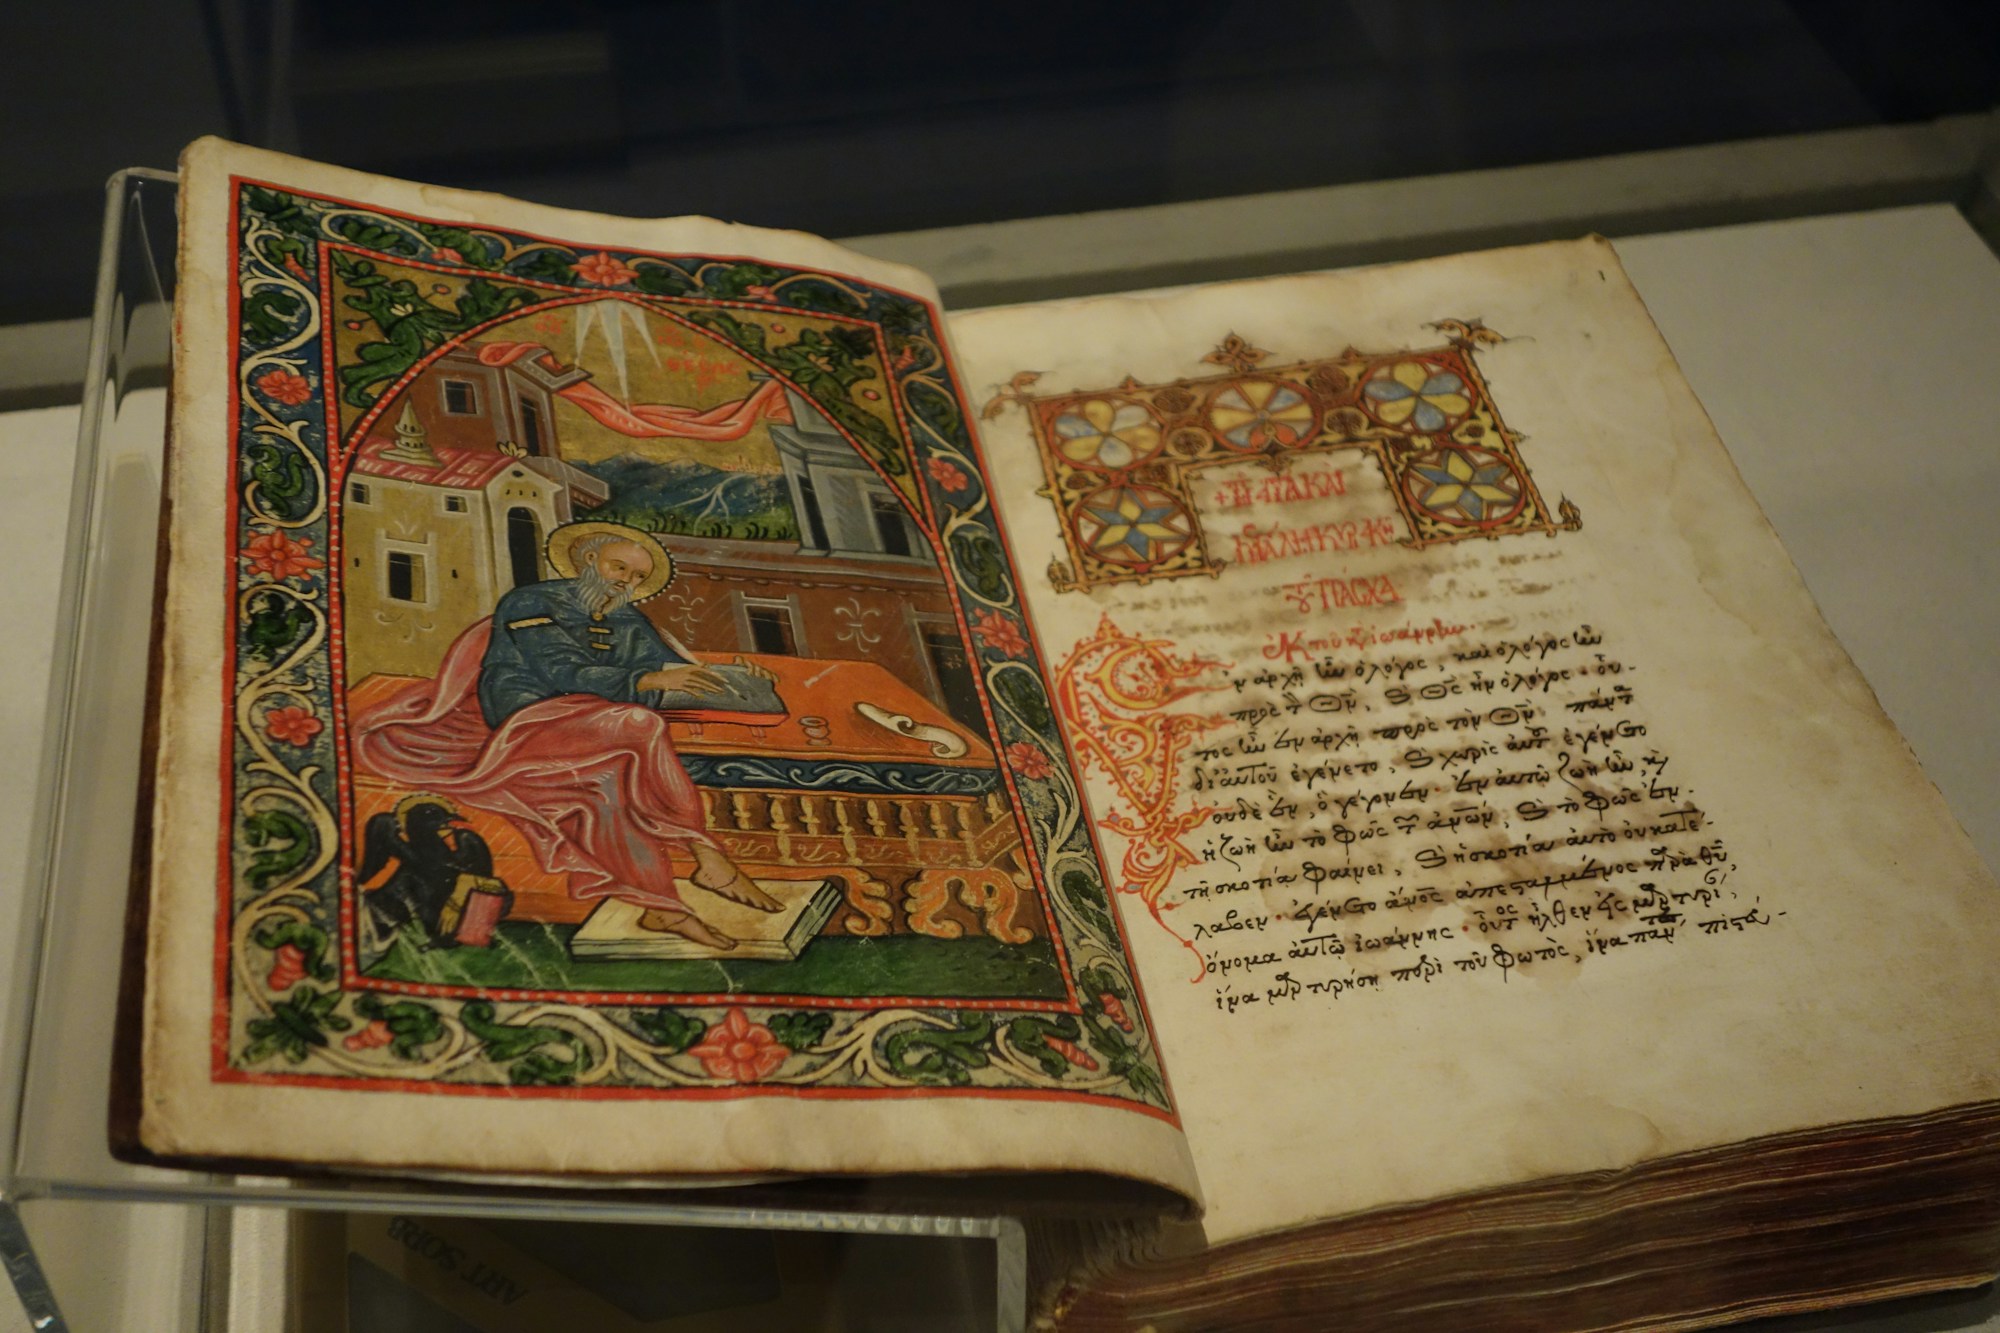 + Τῇ ἁγίᾳ καὶ
μεγάλῃ κυριακῇ
τοῦ πάσχα
ἐκ τοῦ κτ ἰωάννην.
ν ἀρχῇ ἦν ὁ λόγος, καὶ ὁ λόγος ἦν
πρὸς τ Θν, κ Θς ἦν ὁ λόγος. οὗ-
τος ἦν ἐν ἀρχῇ πρὸς τὸν Θν. πάντ
δι αὐτοῦ ἐγένετο, κ χωρὶς αὐτ ἐγένετο
οὐδὲ ἕν, ὃ γέγονεν. ἐν αὐτῷ ζωὴ ἦν, κ
ἡ ζωὴ ἦν τὸ φῶς τ ἀνων, κ τὸ φῶς ἐν
τῇ σκοτίᾳ φαίνει, κ ἡ σκοτία αὐτὸ οὐ κατέ-
λαβεν. ἐγένετο ἄνος ἀπεσταλμένος παρὰ θυ,
ὄνομα αὐτῷ ἰωάννης. οὗτος ἦλθεν εἰς μαρτυρί,
ἵνα μαρτυρήσῃ περὶ τοῦ φωτὸς, ἵνα παν πιστεύ-
ART SORB